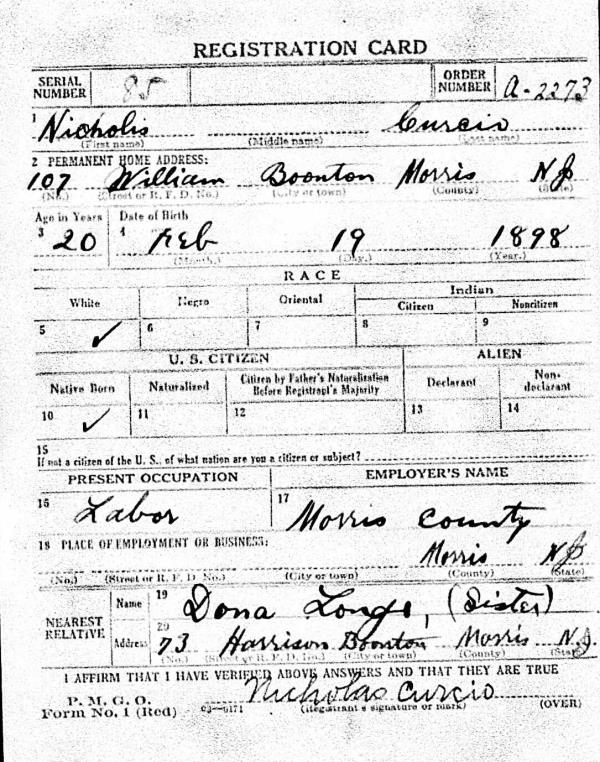 REGISTRATION CARD
SERIAL NUMBER 85 ORDER NUMBER A-2273
1 Nicholis Curcio
(First name) (Middle name) (Last name)
2 PERMANENT HOME ADDRESS:
107 William Boonton Morris N J
(No.) (Street or R. F. D. No.) (City or town) (County) (State)
Age in Years Date of Birth
3 20 4 Feb 19 1898
(Month.) (Day.) (Year.)
RACE
White Negro Oriental Indian
Citizen Noncitizen
5 ✓ 6 7 8 9
U. S. CITIZEN ALIEN
Native Born Naturalized Citizen by Father's Naturalization Before Registrant's Majority Declarant Non-declarant
10 ✓ 11 12 13 14
15
If not a citizen of the U. S., of what nation are you a citizen or subject?
PRESENT OCCUPATION EMPLOYER'S NAME
16 Labor 17 Morris County
18 PLACE OF EMPLOYMENT OR BUSINESS:
Morris N J
(No.) (Street or R. F. D. No.) (City or town) (County) (State)
NEAREST RELATIVE Name 19 Dona Longo, (Sister)
Address 20 73 Harrison Boonton Morris N.J.
(No.) (Street or R. F. D. No.) (City or town) (County) (State)
I AFFIRM THAT I HAVE VERIFIED ABOVE ANSWERS AND THAT THEY ARE TRUE
Nicholas Curcio
P. M. G. O.
Form No. 1 (Red) (Registrant's signature or mark) (OVER)